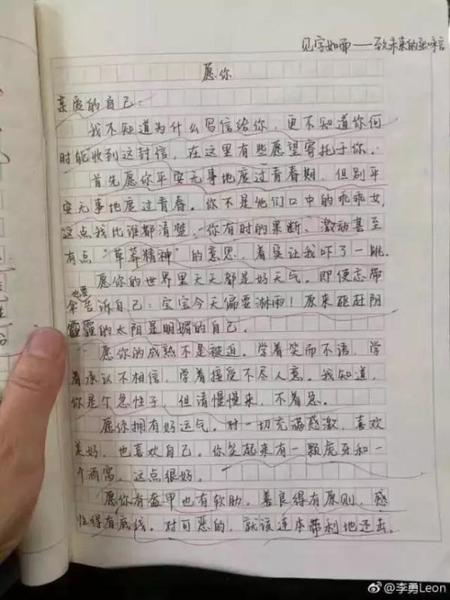 见字如面——致未来的
愿你
亲爱的自己:
我不知道为什么写信给你,更不知道你何
时能收到这封信,在这里有些愿望寄托于你。
首先愿你平安无事地度过青春期,但别平
安无事地度过青春。你不是他们口中的乖乖女,
这点我比谁都清楚,你有时的果断、激动甚至
有点“草莽精神”的意思,着实让我吓了一跳。
愿你的世界里天天都是好天气。即便忘带
伞也要告诉自己:宝宝今天偏要淋雨!原来驱赶阴
霾的太阳是明媚的自己。
愿你的成熟不是被迫。学着笑而不语,学
着承认不相信,学着接受不尽人意。我知道,
你是个急性子,但请慢慢来,不着急。
愿你拥有好运气。对一切充满感激,喜欢
美好,也喜欢自己。你笑起来有一颗虎牙和一
个酒窝,这点很好。
愿你有盔甲也有软肋,善良得有原则,感
性得有底线。对可恶的,就该连本带利地还击。
@李勇Leon